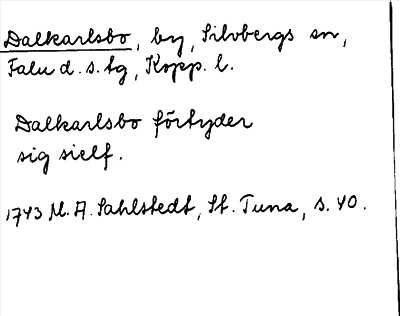 Dalkarlsbo, by, Silvbergs sn,
Falu d. s. tg, Kopp. l.
Dalkarlsbo förtyder
sig sielf.
1743 M. A. Sahlstedt, St. Tuna, s. 40.